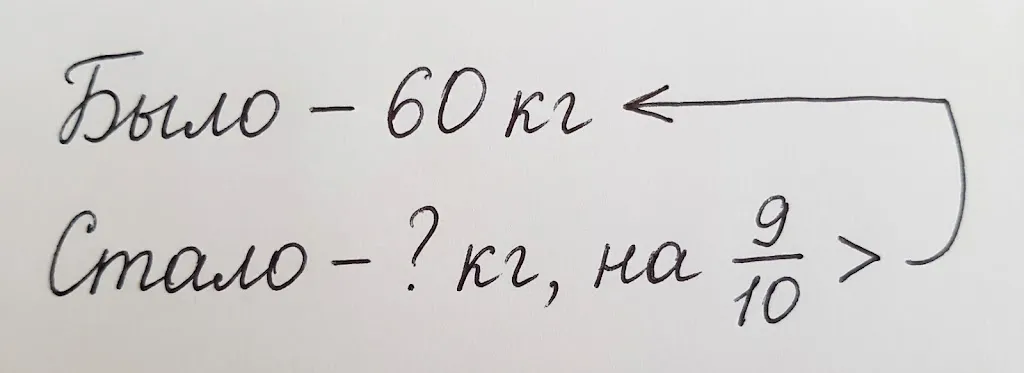 Было – 60 кг
Стало – ? кг, на 9/10 >